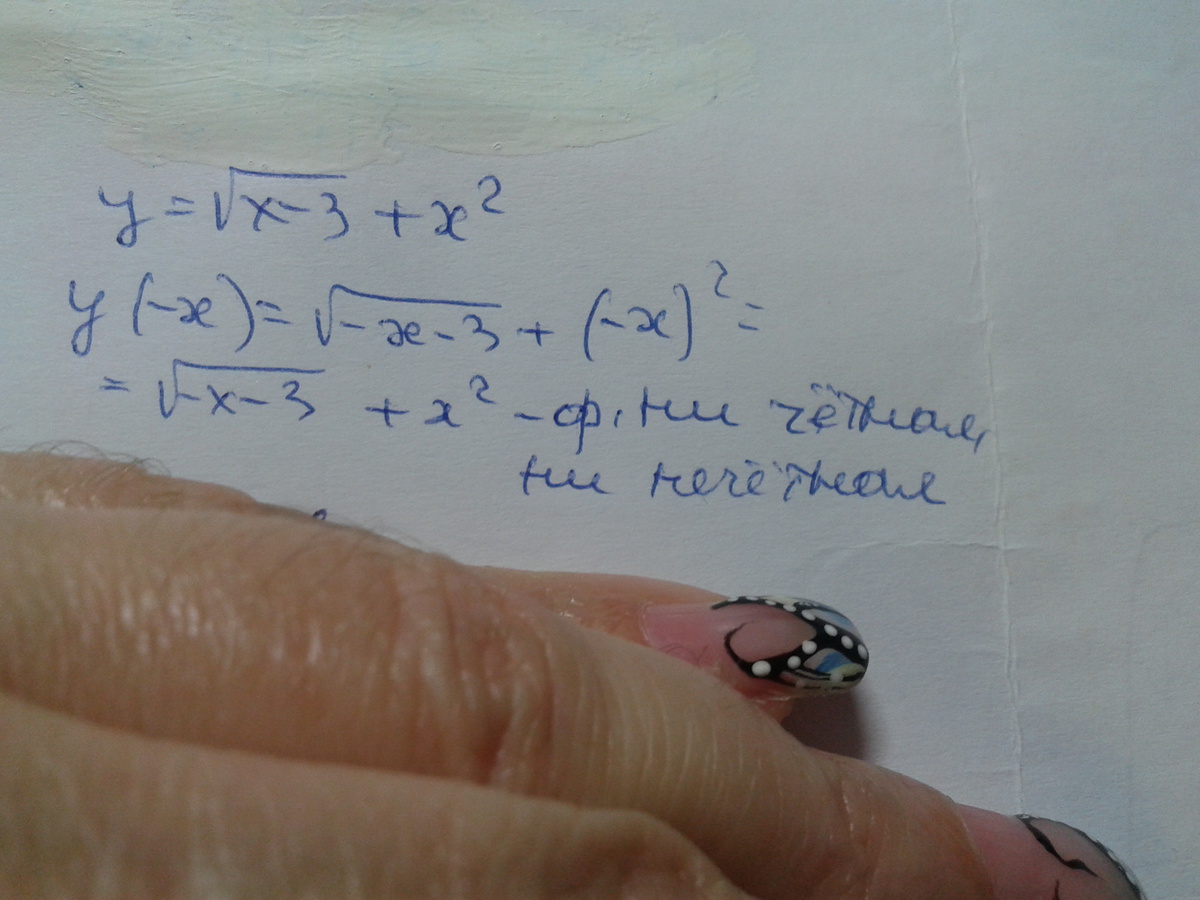 y = √x-3 + x²
y(-x) = √-x-3 + (-x)² =
= √-x-3 + x² - ф. ни чётная,
ни нечётная